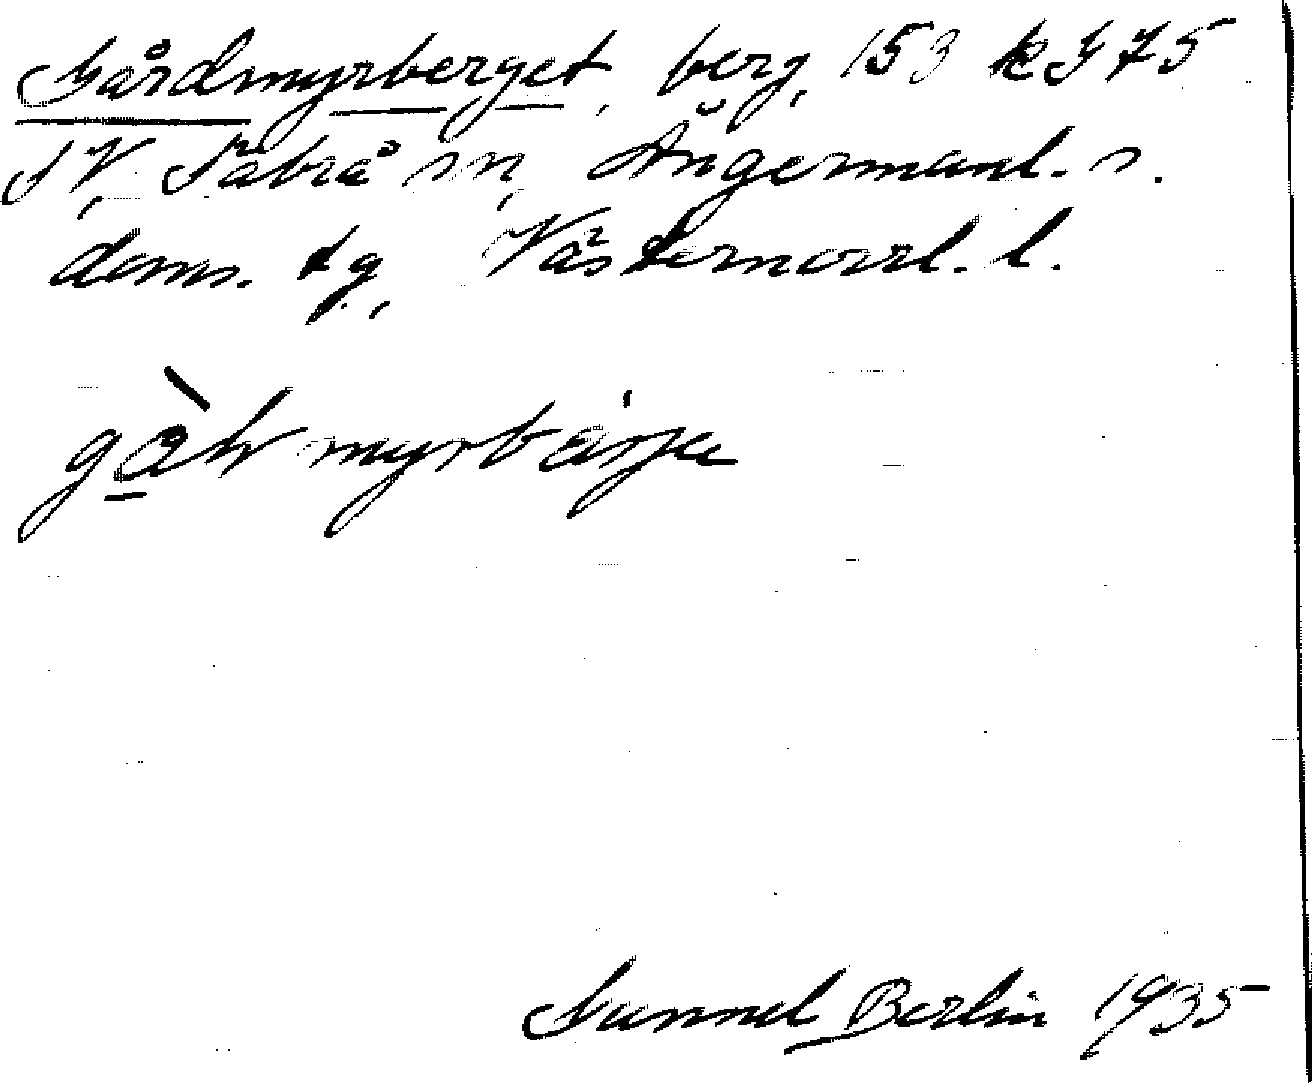 Gårdmyrberget, berg, 153 k I 75
SV, Säbrå sn, Ångermanl. s.
doms. tg, Västernorrl. l.
gàh myrbärje
Gunnel Berlin 1935